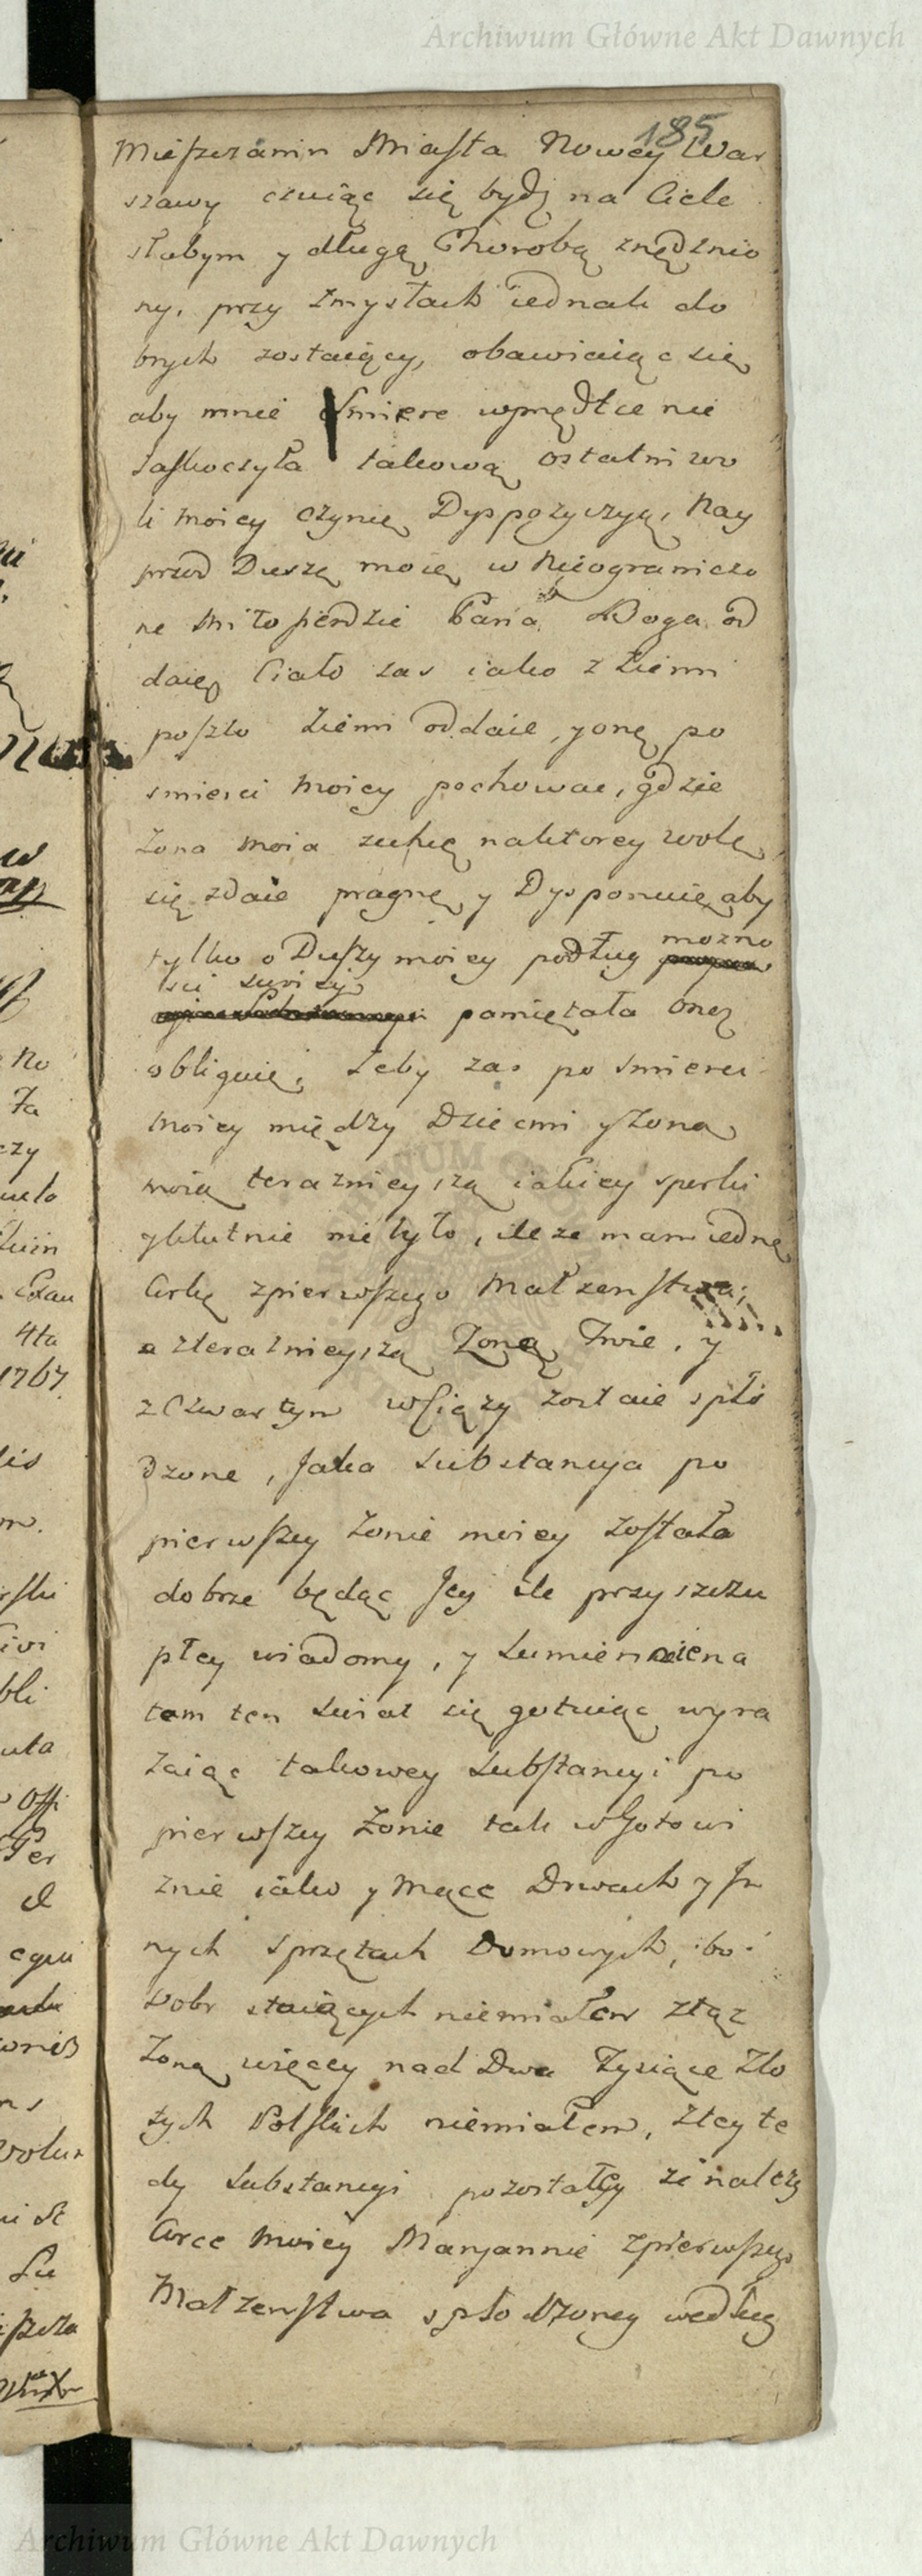 Archiwum Główne Akt Dawnych
185
Mieszczanin Miasta Nowey War
szawy czuiąc się bydz na Ciele
słabym y długą Chorobą znędznio
ny, przy Zmysłach iednak do
brych zostaiący, obawiaiąc się
aby mnie Smierc wprędkce nie
zaskoczyła takową ostatni wo
li moiey czynię Dyspozycyą, Nay
przod Duszę moię w Nieogranicze
ne Miłosierdzie Pana Boga od
daię Ciało zas iako z Ziemi
poszło Ziemi oddaie, y onę po
smierci moiey pochowac, gdzie
Zona moia zechcę naktorey wolę
się zdaie pragnę y Dysponuię aby
tylko o Duszy moiey podług mozno
sci swoiey
pamiętała onę
obliguię, Zeby zas po smierci
moiey między Dziecmi y Zoną
moią teraznieyszą iakiey sperki
y kłutnie nie było, ile ze mam iednę
Corkę zpierwszego Małzenstwa;
a zteraznieyszą Zoną Troie, y
zCzwartym wCiązy zostaie spło
dzone, Jaka Substancya po
pierwszey Zonie moiey została
dobrze będąc Jey ile przy szczu
płey wiadomy, y Sumiennie na
tam ten Swiat się gotuiąc wyra
zaiąc takowey Substancyi po
pierwszey Zonie tak wGotowi
znie iako y Mące Drwach y In
nych sprzętach Domowych, bo
Dobr staiących niemiałem ztąż
Zoną więcey nad Dwa Tysiące Zło
tych Polskich niemiałem, Ztey te
dy Substancyi pozostałey ze nalezy
Corce moiey Maryannie zpierwszego
Małzenstwa spłodzoney według
Archiwum Główne Akt Dawnych